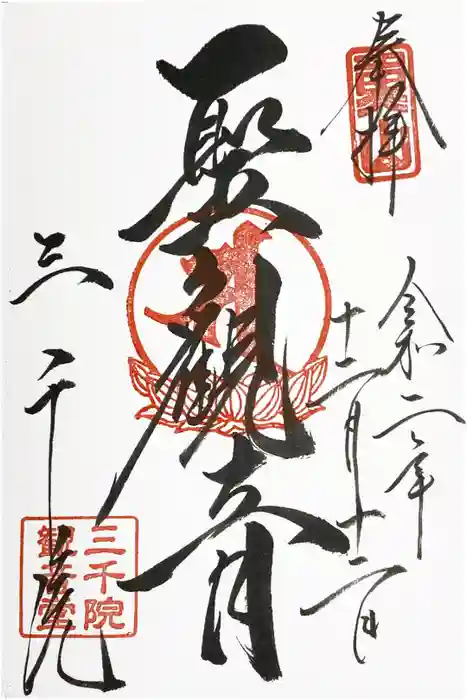 奉拝
令和二年
十二月十二日
聖観音
三千院
三千院
観音堂